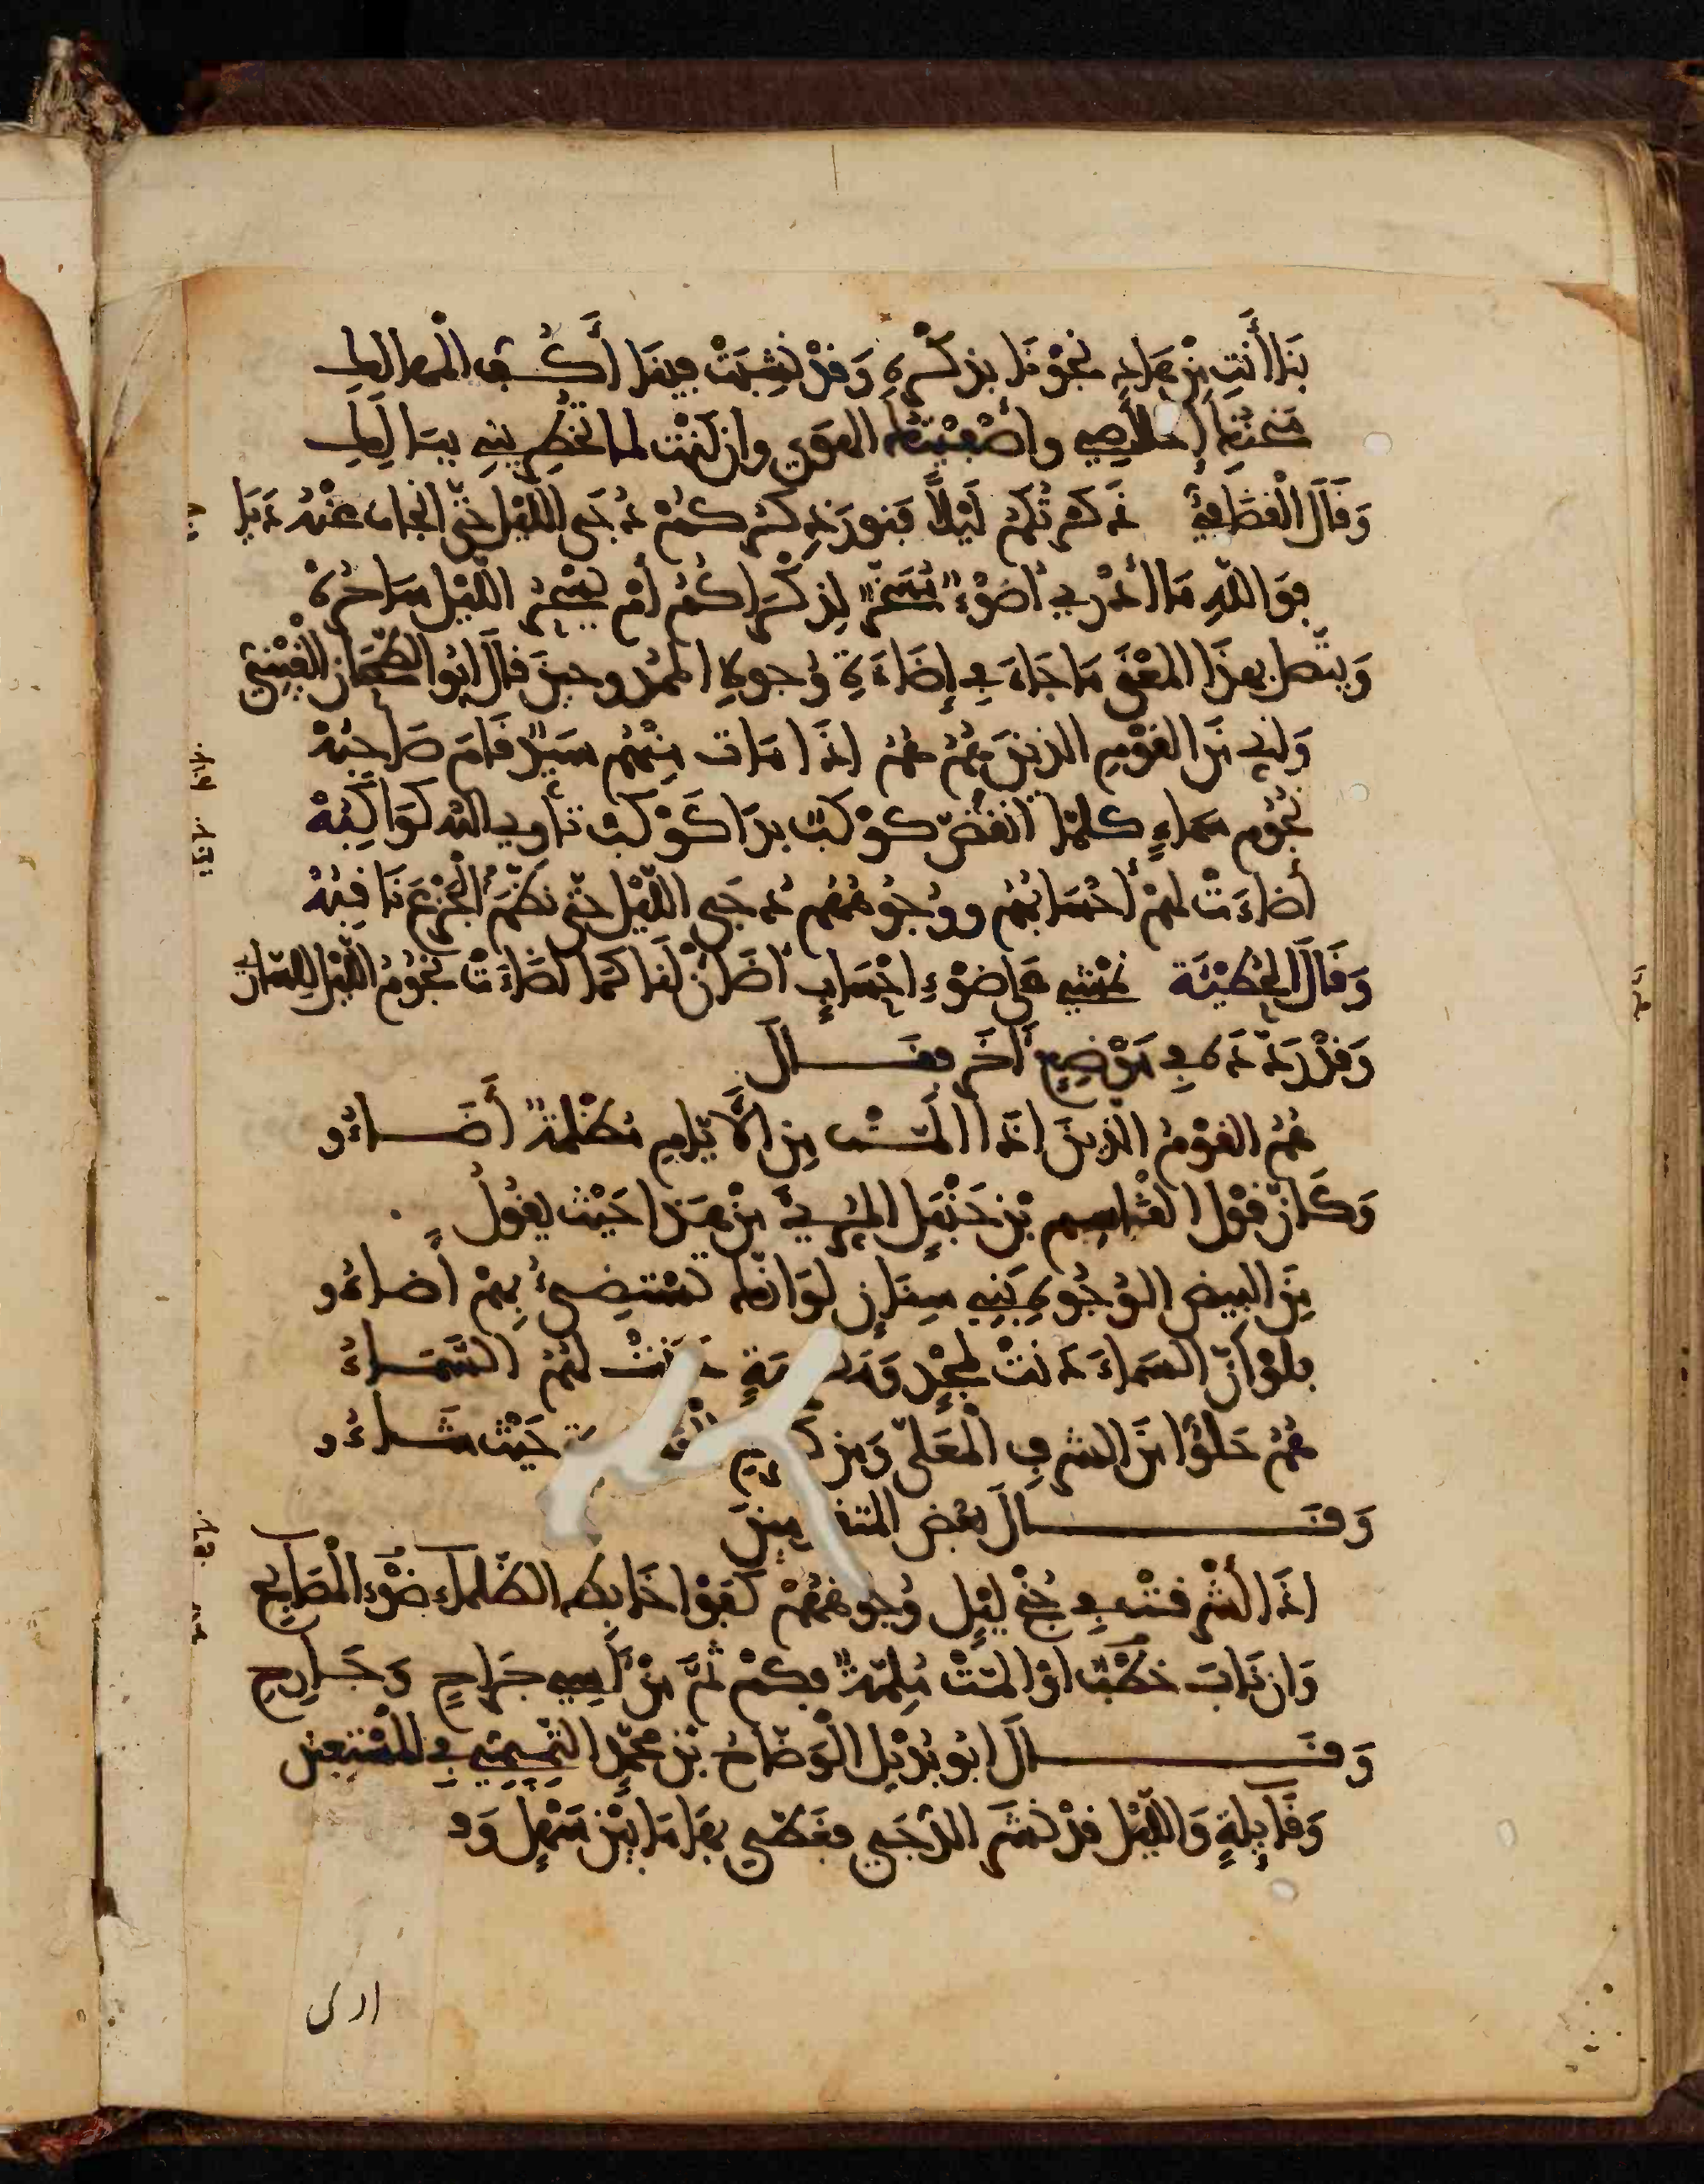 بَنَا أَنْتِ مِنْ هَادٍ نَجَوْنَا بِذِكْرِهِ وَقَدْ نَشِبَتْ فِينَا أَكُفُّ الْمَهَالِكِ
مَنَحْتُهَا إِخْلَاصِي وأَصْفَيْتُهَا الهَوَى وان كُنْتِ لما تُخْطِرِينِي بِبَالِكِ
وَقَالَ الْقُطَامِيُّ ذَكَرْتُكُمْ لَيْلًا فَنَوَّرَ ذِكْرُكُمْ دُجَى اللَّيْلِ حَتَّى انْجَابَ عَنْهُ دَيَا
فَوَاللَّهِ مَا أَدْرِي أَضَوْءٌ مُسَخَّرٌ لِذِكْرَاكُمُ أَمْ يَسْجُرُ اللَّيْلَ سَاجِرُهْ
وَيتَّصِل بِهَذَا الْمَعْنَى مَا جَاءَ فِي إِضَاءَةِ وُجوهِ الممدوحينَ قَالَ أَبُو الطَّمَحَانِ الْقَيْنِيُّ
وَإِنِّي مِنَ القَوْمِ الذِينَ هُمُ هُمُ اذَا مَاتَ مِنْهُمْ سَيِّدٌ قَامَ صَاحِبُهْ
نُجُوم سَمَاءٍ كلمَا انْقَضَّ كوْكَبٌ بدَا كَوْكَبٌ تَأْوِي اليه كَوَاكِبُهْ
أَضاءَتْ لهُمْ أَحْسَابُهُمْ وَوُجُوهُهُمْ دُجَى اللَّيْلِ حَتَّى نَظَّمَ الْجَزْعَ ثَاقِبُهْ
وَقَالَ الْحُطَيْئَة نَمْشِي عَلَى ضَوْءِ احْسَابٍ أَضَأْنَ لَنَا كَمَا أَضَاءَتْ نُجُومُ اللَّيْلِ لِلسَّارِي
وَقَدْ رَدَّدَهُ فِي مَوْضِعٍ آخَرَ فقَـــالَ
هُمُ القَوْمُ الذِينَ إذَا أَلَمَّـتْ مِنَ الْأَيَّامِ مُظْلِمَةٌ أَضَــاءُو
وَكَأَنَّ قَوْلَ القَاسِمِ بْنِ حَنْبَلٍ المُرِّيِّ مِنْ هَذَا حَيْثُ يَقُولُ
مِنَ البِيضِ الوُجُوهِ بَنِي سِنَانٍ لَوَ انَّكَ تَسْتَضِيءُ بِهِمْ أضاءُو
فلَوْ أَنَّ السَمَاءَ دَنَتْ لِمَجْدٍ دَنَتْ لَهُمُ السَّمَــاءُ
هُمُ حَلُّوا مِنَ الشرفِ الْمُعَلَّى وَمِنْ حَيْثُ شَــاءُو
وَقَـــــــالَ بَعْضُ المتقدمِينَ
اذَا أَشْرَقَتْ فِي جُنْحِ لَيْلٍ وُجُوهُهُمْ كَفَوْا خَابِطَ الظَّلْمَاءِ ضَوْءَ الْمَصَابِحِ
وَان نَابَ خَطْبٌ اوْ أَلَمَّتْ مُلِمَّةٌ فكَمْ ثَمَّ مِنْ آسِي جِرَاحٍ وَجَــارِحِ
وَقَــــــــالَ أَبُو بُدَيْلٍ الْوَضَّاحُ بْنُ مُحَمَّدٍ التَّمِيمِيُّ فِي الْمُسْتَعِينِ
وَقَائِلَةٍ وَاللَّيْلُ قَدْ نَشَرَ الدُّجَى فَغَطَّى بِهَا مَا بَيْنَ سَهْلٍ وَو